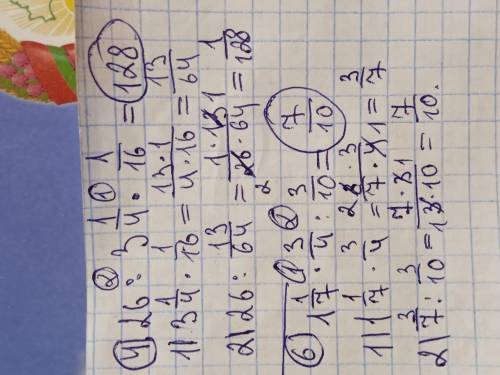 ② ①
4) 26 : 3 1/4 · 1/16 = 128
1) 3 1/4 · 1/16 = 13·1/4·16 = 13/64
2) 26 : 13/64 = 1·13·1/26·64 = 1/128
① ②
6) 1 1/7 · 3/4 : 3/10 = 7/10
1) 1 1/7 · 3/4 = 28·3/7·41 = 3/7
2) 3/7 : 3/10 = 7·31/13·10 = 7/10.